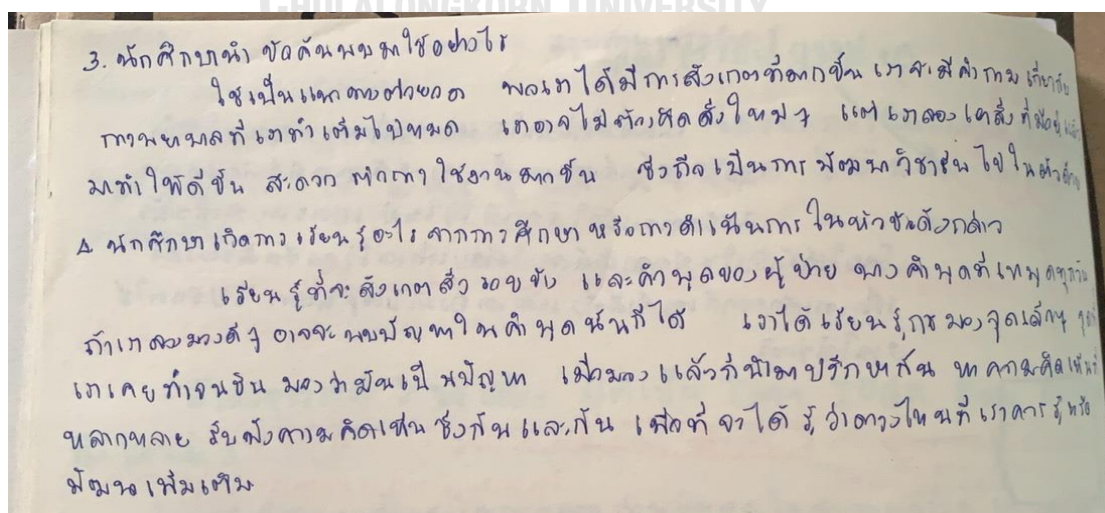 CHULALONGKORN UNIVERSITY
3. นักศึกษานำข้อค้นพบมาใช้อย่างไร
ใช้เป็นแนวทางต่อยอด พอเราได้มีการสังเกตที่มากขึ้น เราจะมีคำถามเกี่ยวกับ
การพยาบาลที่เราทำเต็มไปหมด เราอาจไม่ต้องคิดสิ่งใหม่ๆ แต่เราลองเอาสิ่งที่มีอยู่แล้ว
มาทำให้ดีขึ้น สะดวกต่อการใช้งานมากขึ้น ซึ่งถือเป็นการพัฒนาวิชาชีพไปในตัวด้วย
4 นักศึกษาเกิดการเรียนรู้อะไรจากการศึกษาหรือการดำเนินการในหัวข้อดังกล่าว
เรียนรู้ที่จะสังเกตสิ่งรอบข้าง และคำพูดของผู้ป่วย บางคำพูดที่เขาพูดทุกวัน
ถ้าเราลองมองดีๆ อาจจะพบปัญหาในคำพูดนั้นก็ได้ เราได้เรียนรู้การมองจุดเล็กๆ
เราเคยทำจนชิน มองว่ามันเป็นปัญหา เมื่อมองแล้วก็นำมาปรึกษากัน หาความคิดเห็นที่
หลากหลาย รับฟังความคิดเห็นซึ่งกันและกัน เพื่อที่จะได้รู้ว่าตรงไหนที่เราควรรู้หรือ
พัฒนาเพิ่มเติม